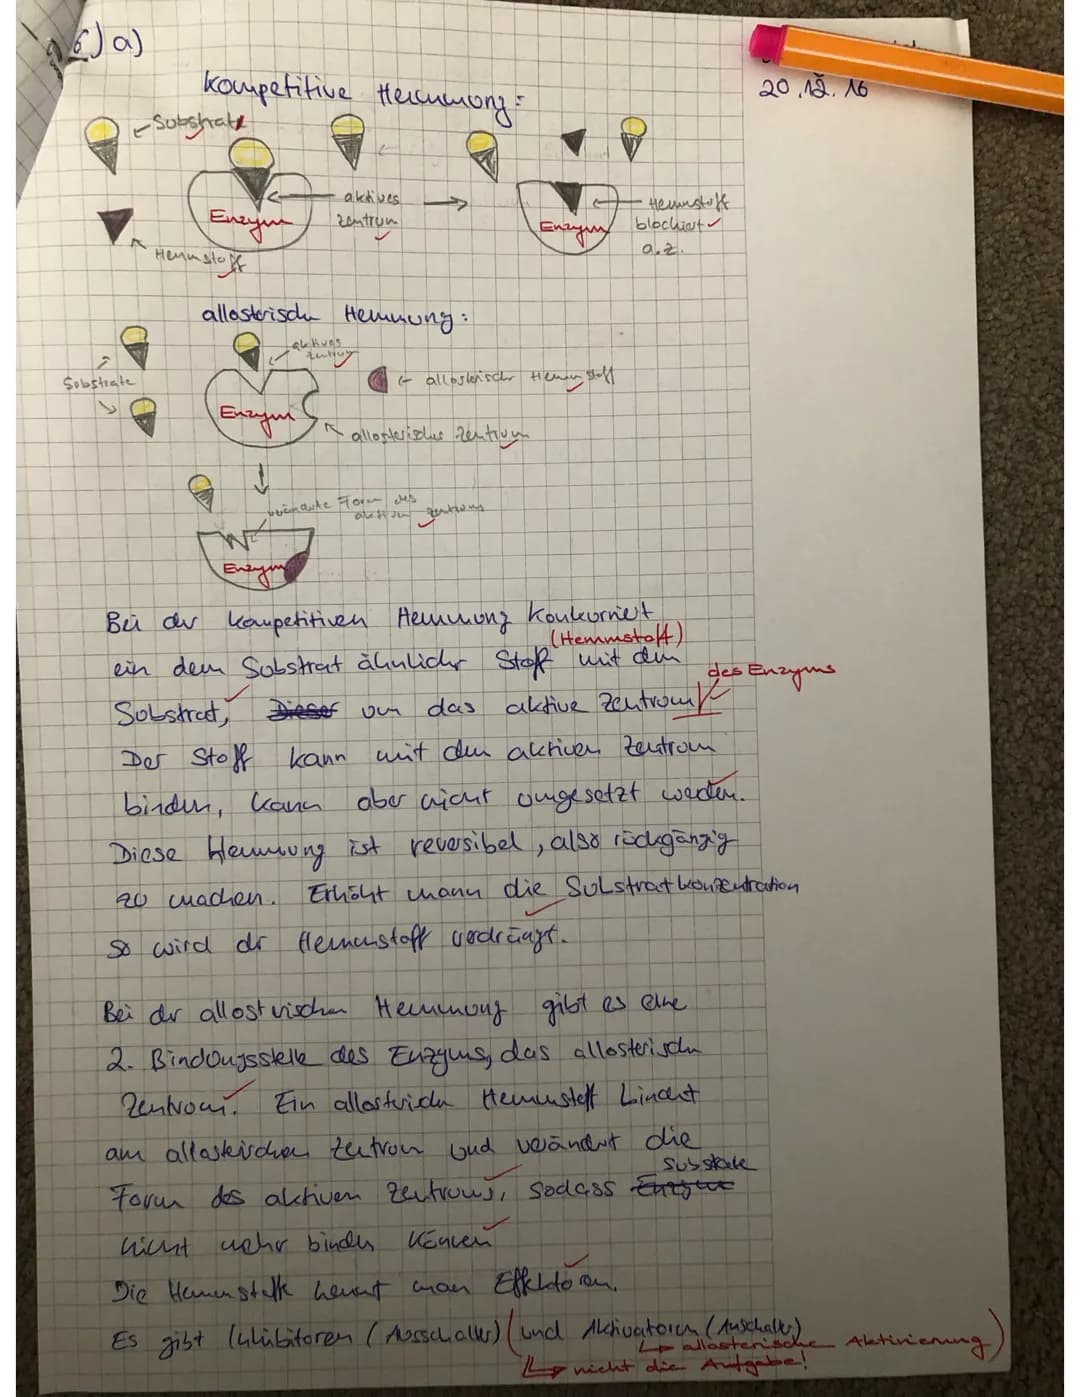 6) a)
20.12.16
Kompetitive Hemmung:
Substrate
aktives
Zentrum
Enzym
Hemmstoff
Enzym
Hemmstoff
blockiert
a.z.
allosterische Hemmung:
aktives
Zentrum
Substrate
allosterischer Hemmstoff
Enzym
allosterisches Zentrum
veränderte Form des
aktiven Zentrums
Enzym
Bei der kompetitiven Hemmung konkurriert
(Hemmstoff)
ein dem Substrat ähnlicher Stoff mit dem
des Enzyms
Substrat, Dieser um das aktive Zentrum
Der Stoff kann mit dem aktiven Zentrum
binden, kann aber nicht umgesetzt werden.
Diese Hemmung ist reversibel, also rückgängig
zu machen. Erhöht mann die Substratkonzentration
so wird der Hemmstoff verdrängt.
Bei der allosterischen Hemmung gibt es eine
2. Bindungsstelle des Enzyms, das allosterische
Zentrum. Ein allosterischer Hemmstoff bindet
am allosterischen Zentrum und verändert die
Substrate
Form des aktiven Zentrums, sodass Enzyme
nicht mehr binden können
Die Hemmstoffe nennt man Effektoren.
Es gibt Inhibitoren (Ausschalter) (und Aktivatoren (Anschalter)
allosterische Aktivierung)
nicht die Aufgabe!